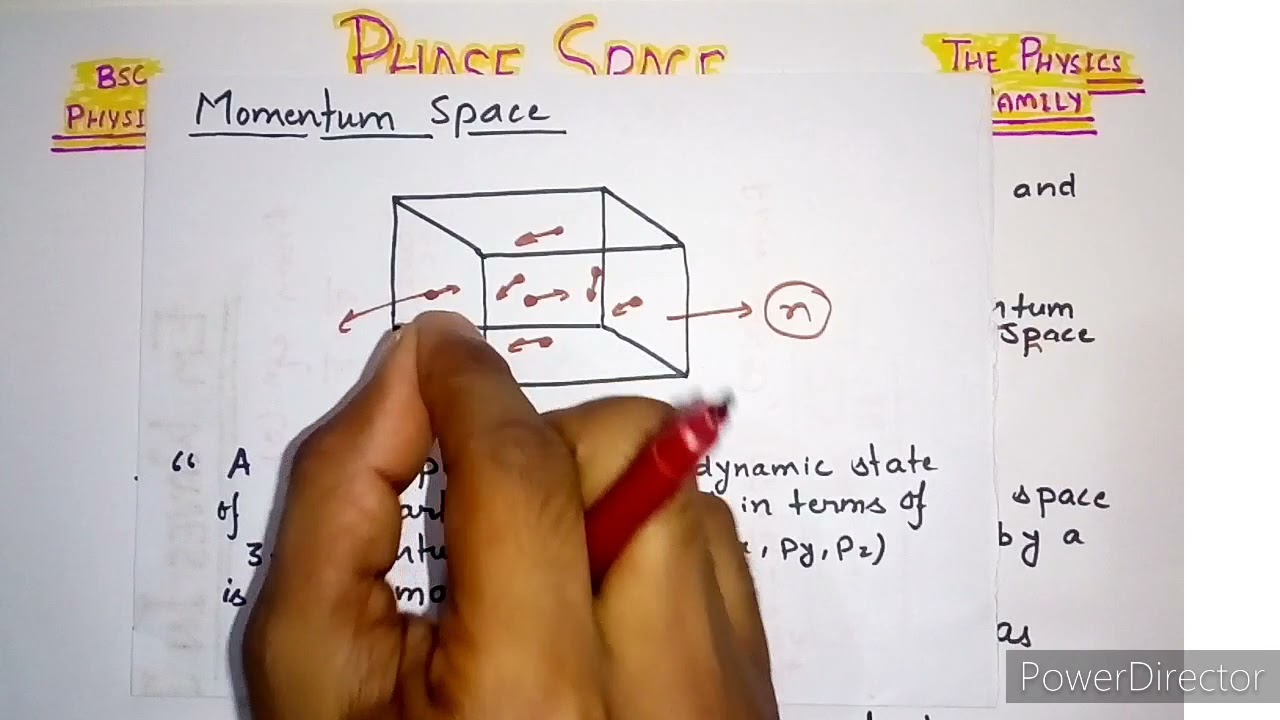 PHASE SPACE
BSC
PHYSI
THE PHYSICS
FAMILY
Momentum Space
and
n
ntum
Space
"A p dynamic state
of art in terms of
space
3- ntu , py, pz)
by a
is mo
as
PowerDirector